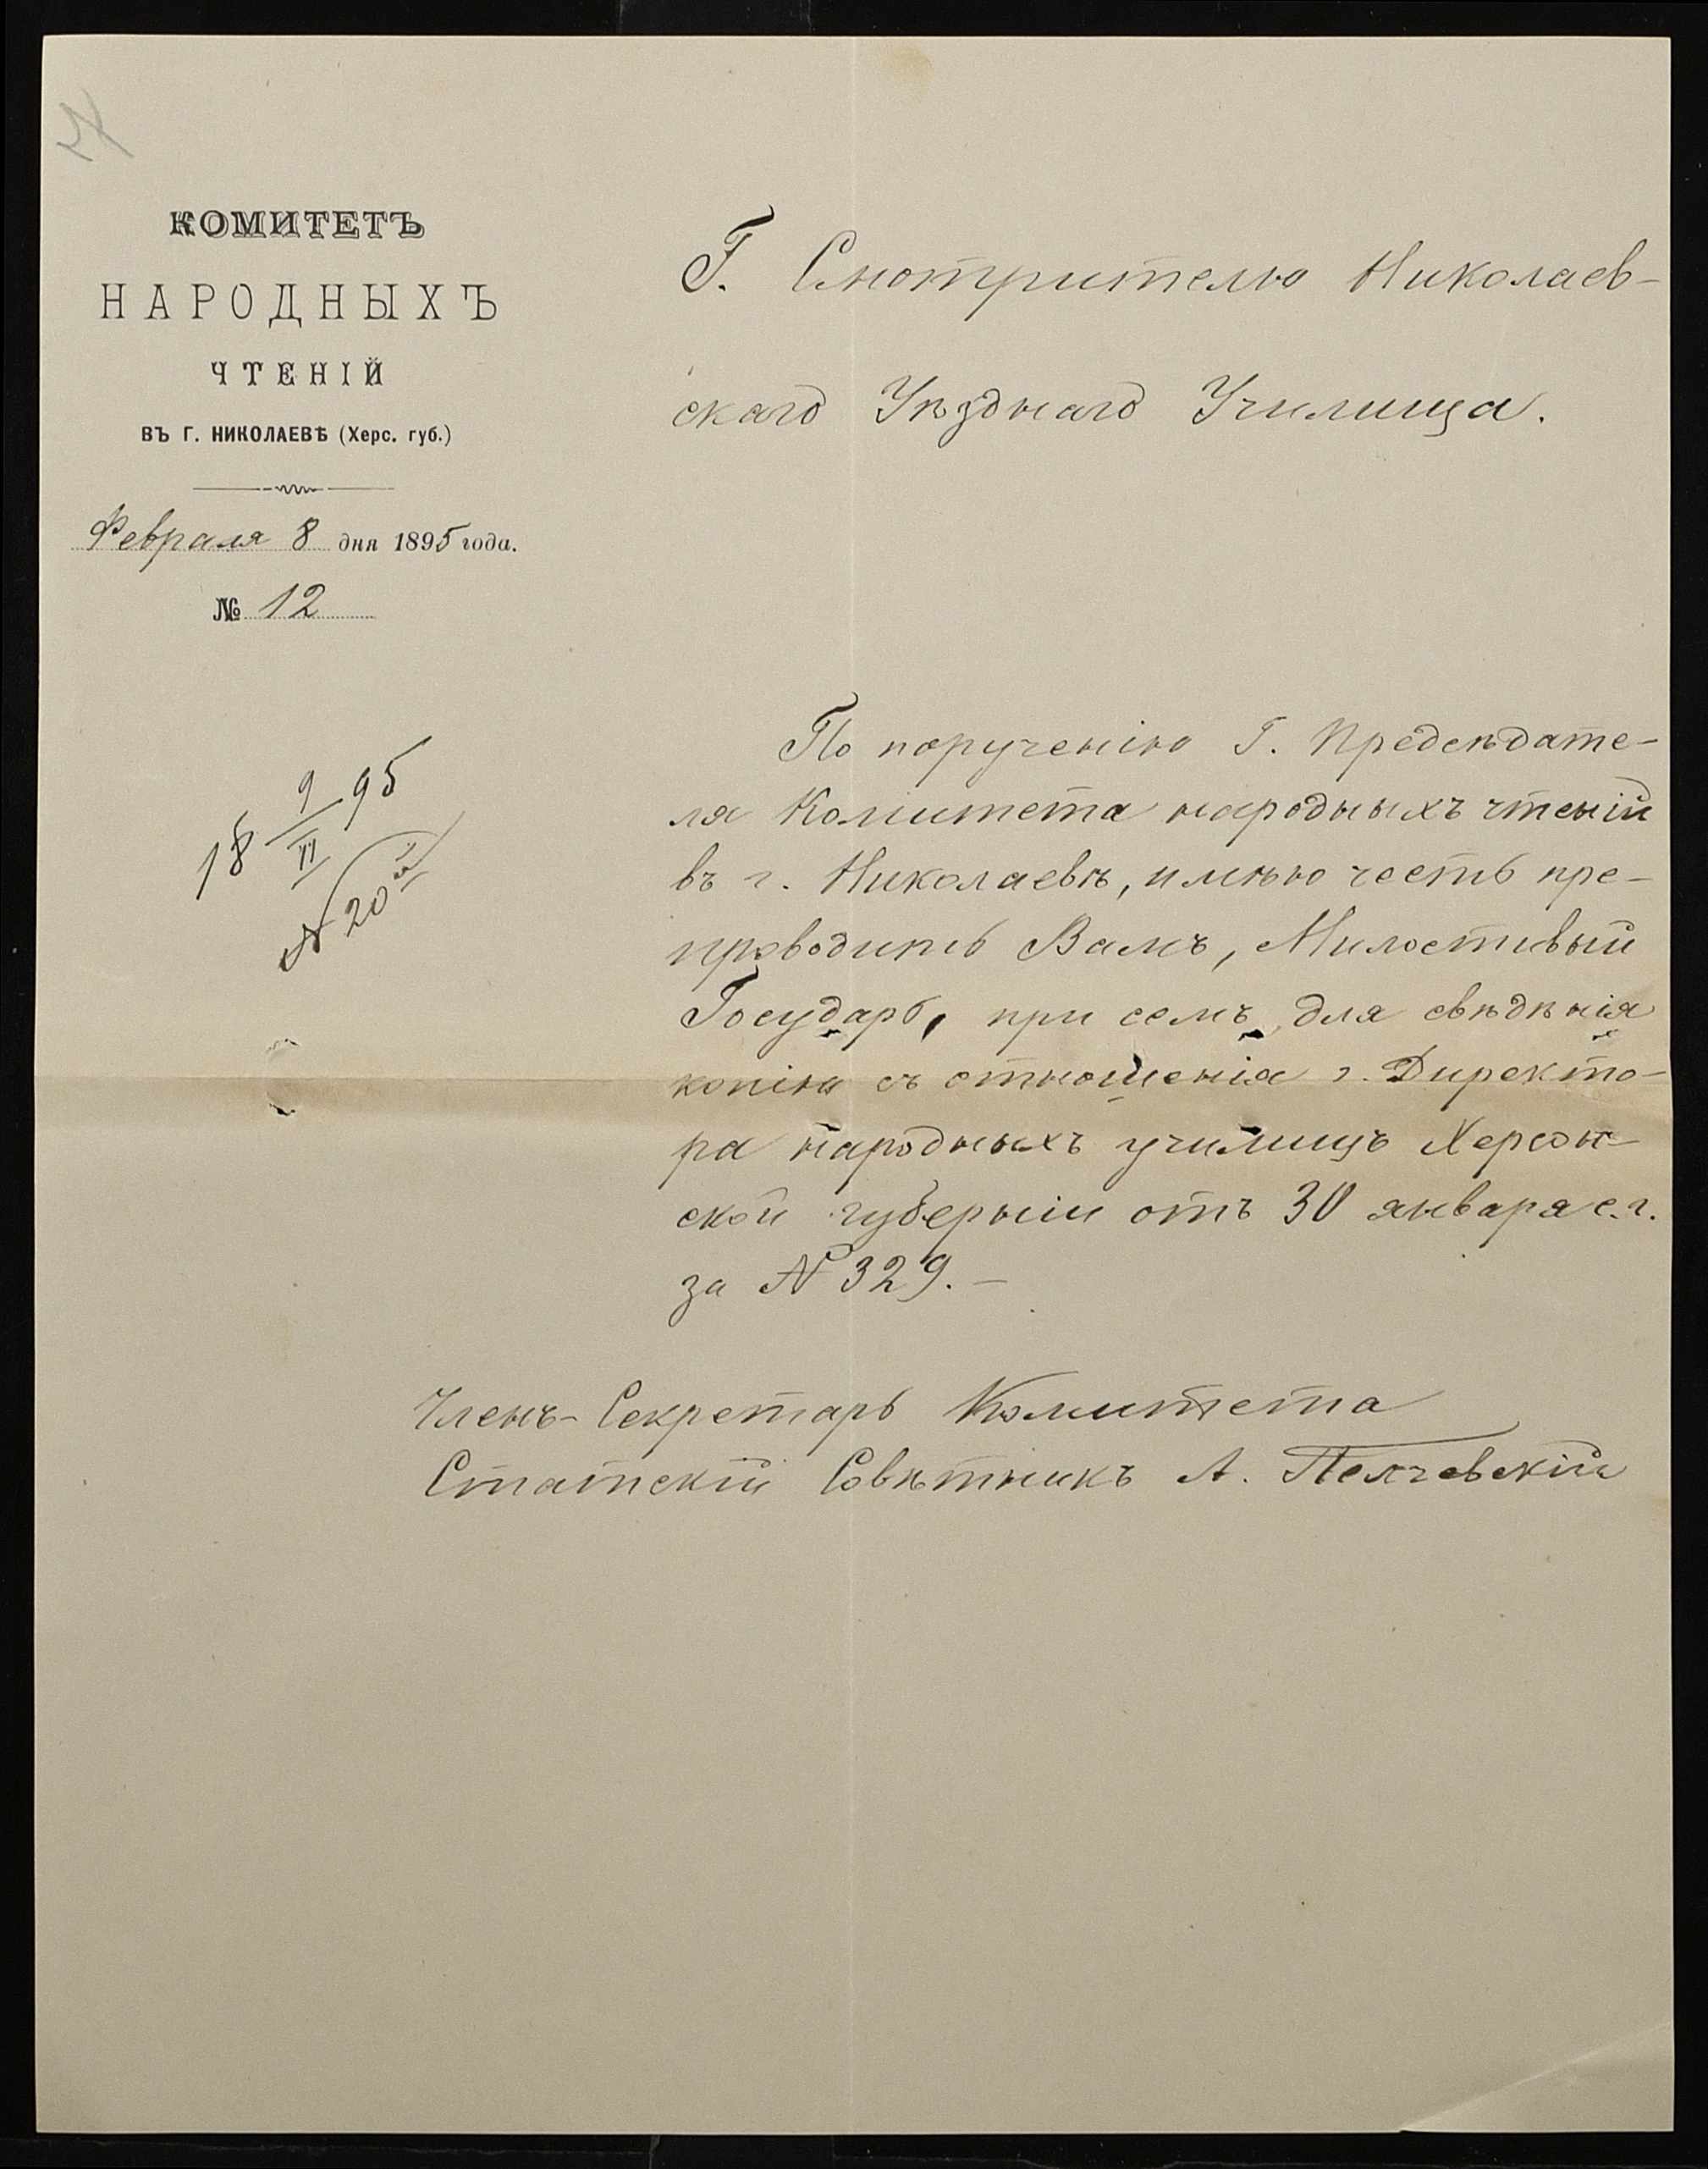 КОМИТЕТЪ
НАРОДНЫХЪ
ЧТЕНІЙ
ВЪ Г. НИКОЛАЕВѢ (Херс. губ.)
Февраля 8 дня 1895 года.
№ 12
18 9/II 95
№ 20
Г. Смотрителю Николаев-
скаго Уѣзднаго Училища.
По порученію Г. Предсѣдате-
ля Комитета народныхъ чтеній
въ г. Николаевѣ, имѣю честь пре-
проводить Вамъ, Милостивый
Государь, при семъ для свѣдѣнія
копію съ отношенія г. Директо-
ра народныхъ училищъ Херсон-
ской губерніи отъ 30 января с.г.
за № 329. —
Членъ-Секретарь Комитета
Статскій Совѣтникъ А.